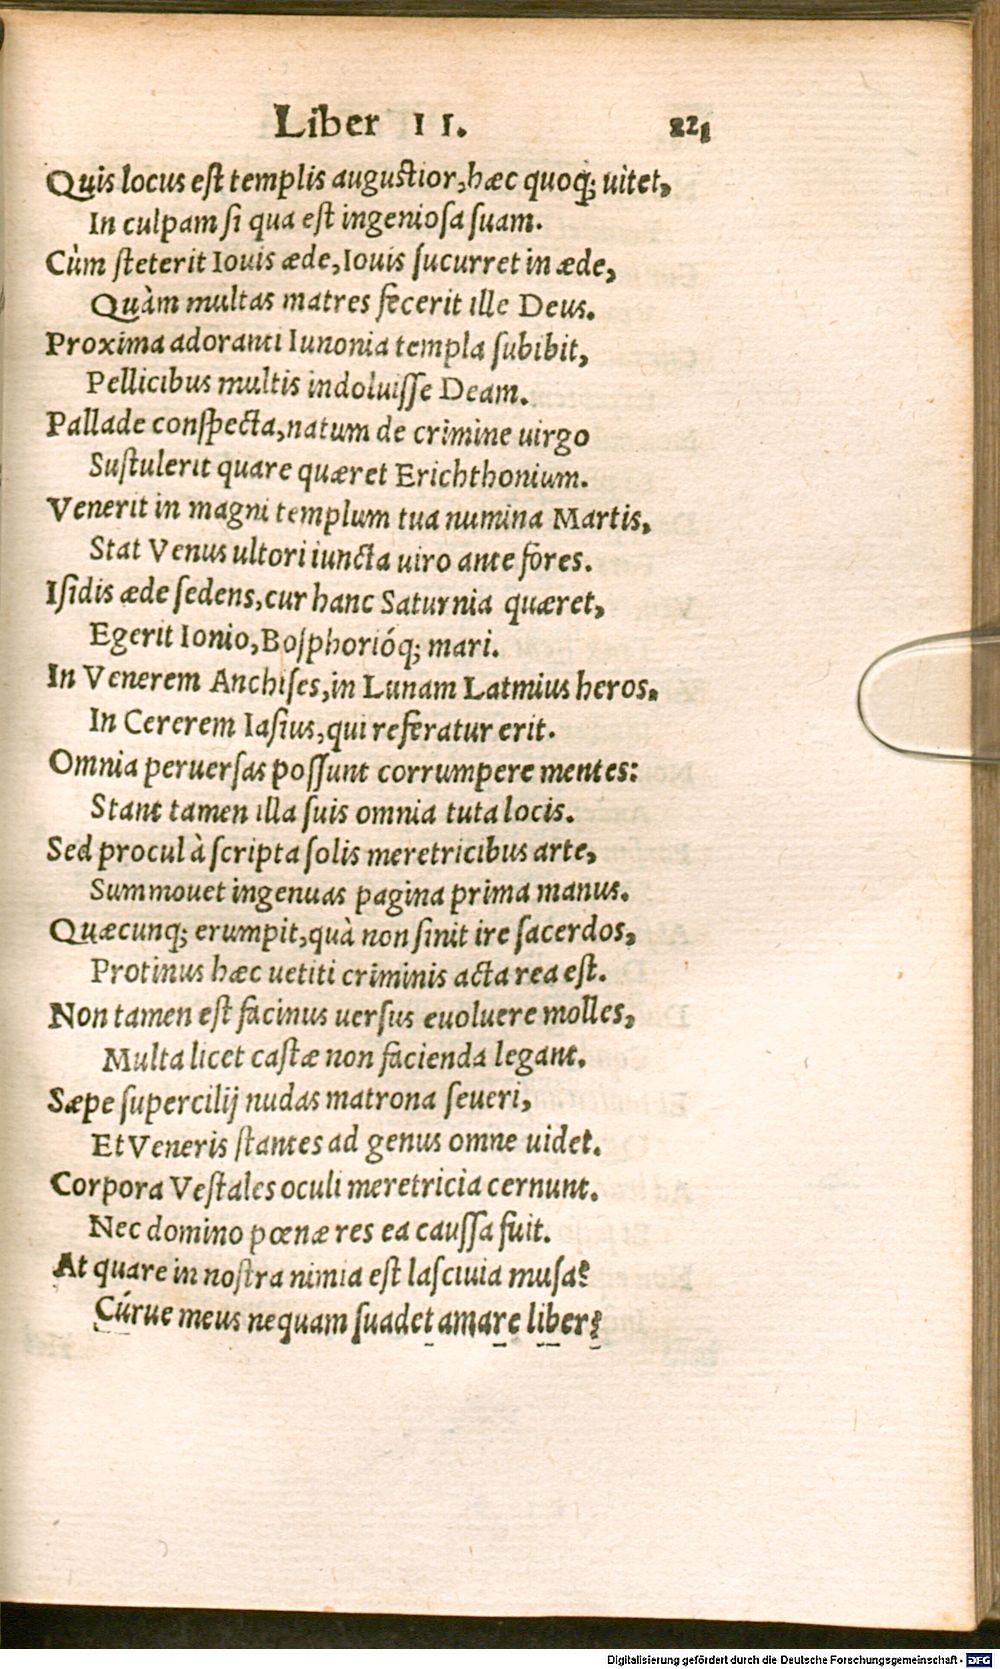 Liber II. 221
Quis locus est templis augustior, hæc quoq; uitet,
In culpam si qua est ingeniosa suam.
Cùm steterit Iouis æde, Iouis sucurret in æde,
Quàm multas matres fecerit ille Deus.
Proxima adoranti Iunonia templa subibit,
Pellicibus multis indoluisse Deam.
Pallade conspecta, natum de crimine uirgo
Sustulerit quare quæret Erichthonium.
Venerit in magni templum tua numina Martis,
Stat Venus ultori iuncta uiro ante fores.
Isidis æde sedens, cur hanc Saturnia quæret,
Egerit Ionio, Bosphorióq; mari.
In Venerem Anchises, in Lunam Latmius heros.
In Cererem Iasius, qui referatur erit.
Omnia peruersas possunt corrumpere mentes:
Stant tamen illa suis omnia tuta locis.
Sed procul à scripta solis meretricibus arte,
Summouet ingenuas pagina prima manus.
Quæcunq; erumpit, quà non sinit ire sacerdos,
Protinus hæc uetiti criminis acta rea est.
Non tamen est facinus uersus euoluere molles,
Multa licet castæ non facienda legant.
Sæpe supercilij nudas matrona seueri,
Et Veneris stantes ad genus omne uidet.
Corpora Vestales oculi meretricia cernunt.
Nec domino pœnæ res ea caussa fuit.
At quare in nostra nimia est lasciuia musa?
Cúrue meus nequam suadet amare liber?
Digitalisierung gefördert durch die Deutsche Forschungsgemeinschaft - DFG